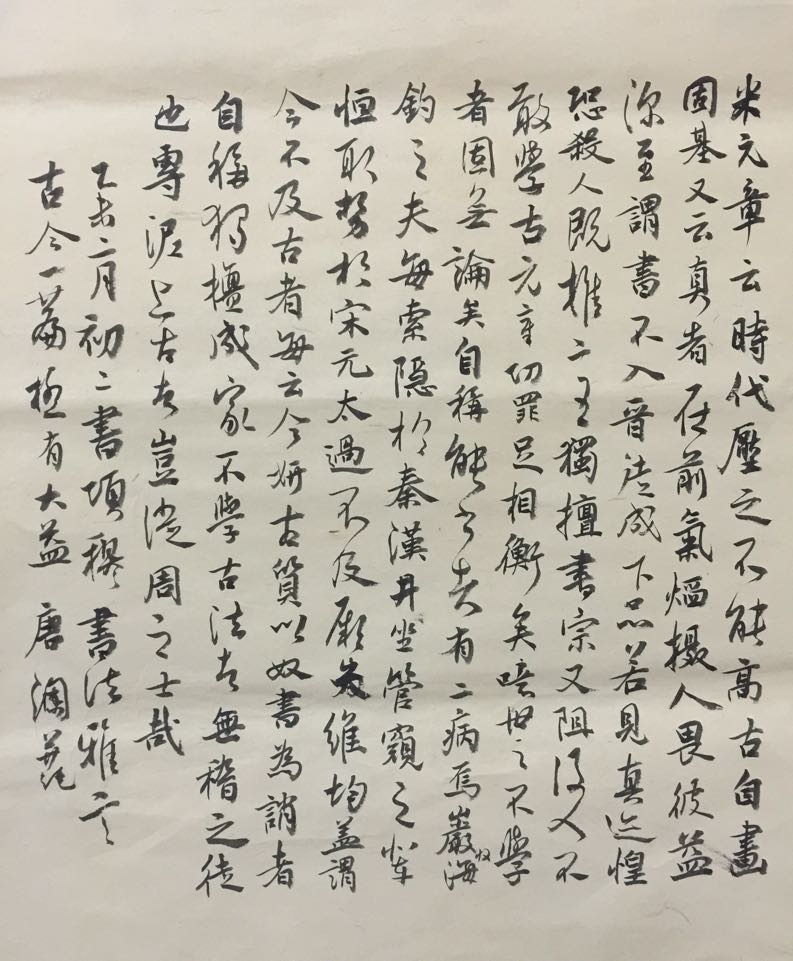 米元章云時代壓之不能高古自畫
固基又云真者在前氣熖摄人畏彼益
深至謂書不入晉徒成下品若見真迹惶
恐殺人既推二王獨擅書宗又阻後人不
敢學古元章功罪足相衡矣噫世之不學
者固無論矣自稱能書者有二病焉巖收海
釣之夫每索隱於秦漢井坐管窺之輩
恒取勢於宋元太過不及厥失維均蓋謂
今不及古者每云今妍古質以奴書為誚者
自稱獨擅成家不學古法者無稽之徒
也專泥上古者豈從周之士哉
乙未二月初二書項穆書法雅言
古今一篇極有大益 唐瀾